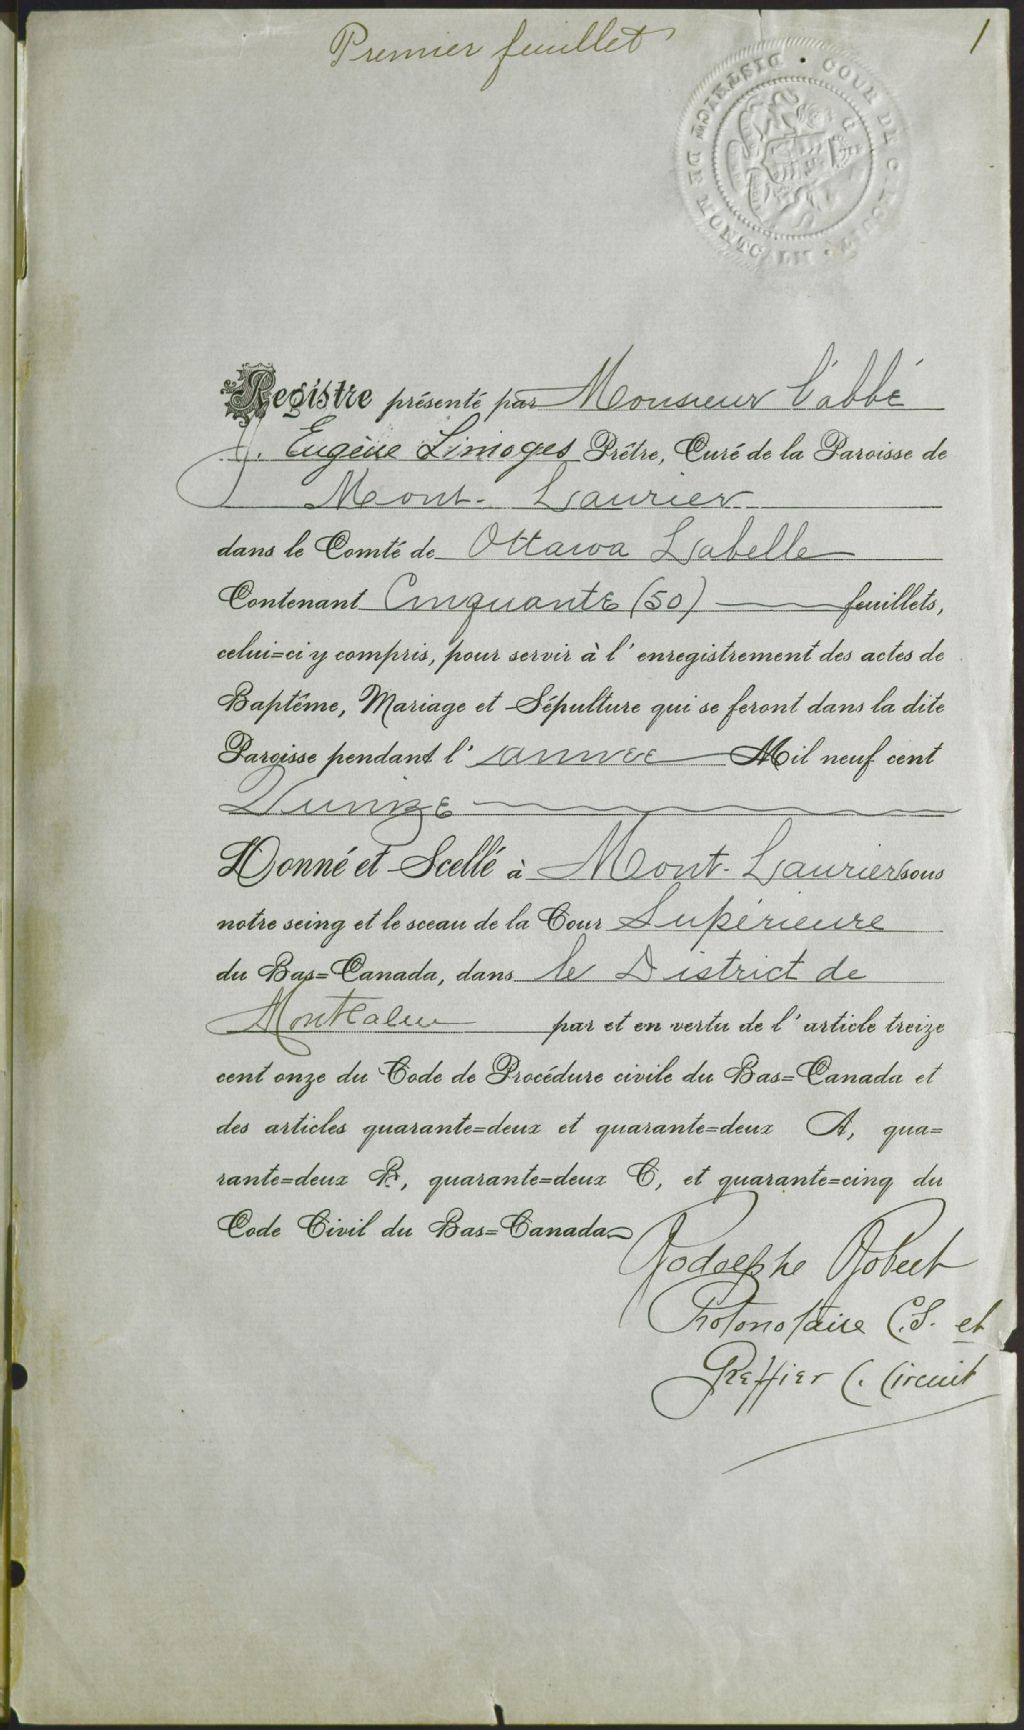 Premier feuillet 1
DISTRICT DE MONTCALM . COUR DE CIRCUIT .
Registre présenté par Monsieur l'abbé
J. Eugène Limoges Prêtre, Curé de la Paroisse de
Mont-Laurier
dans le Comté de Ottawa Labelle
Contenant Cinquante (50) feuillets,
celui=ci y compris, pour servir à l'enregistrement des actes de
Baptême, Mariage et Sépulture qui se feront dans la dite
Paroisse pendant l'année Mil neuf cent
Quinze
Donné et Scellé à Mont-Laurier sous
notre seing et le sceau de la Cour Supérieure
du Bas=Canada, dans le District de
Montcalm par et en vertu de l'article treize
cent onze du Code de Procédure civile du Bas=Canada et
des articles quarante=deux et quarante=deux A, qua=
rante=deux B, quarante=deux C, et quarante=cinq du
Code Civil du Bas=Canada
Rodolphe Robert
Protonotaire C.S. et
Greffier C. Circuit